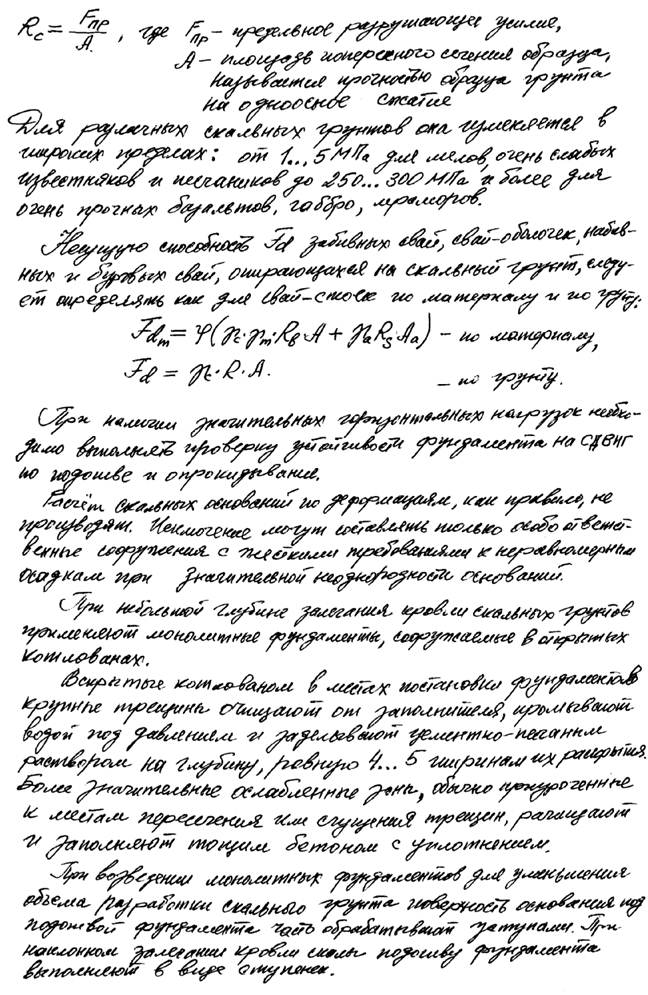 Rc = Fпр/A, где Fпр – предельное разрушающее усилие,
A – площадь поперечного сечения образца,
называется прочностью образца грунта
на одноосное сжатие
Для различных скальных грунтов она изменяется в
широких пределах: от 1...5 МПа для мелов, очень слабых
известняков и песчаников до 250...300 МПа и более для
очень прочных базальтов, габбро, мраморов.
Несущую способность Fd забивных свай, свай-оболочек, набив-
ных и буровых свай, опирающихся на скальный грунт, следу-
ет определять как для свай-стоек по материалу и по грунту:
Fdm = φ(γc·γm·Rb·A + γaRs·Aa) – по материалу,
Fd = γc·R·A. – по грунту.
При наличии значительных горизонтальных нагрузок необхо-
димо выполнять проверку устойчивости фундамента на сдвиг
по подошве и опрокидывание.
Расчёт скальных оснований по деформациям, как правило, не
производят. Исключение могут составлять только особо ответст-
венные сооружения с жесткими требованиями к неравномерным
осадкам при значительной неоднородности оснований.
При небольшой глубине залегания кровли скальных грунтов
применяют монолитные фундаменты, сооружаемые в открытых
котлованах.
Вскрытые котлованом в местах постановки фундаментов
крупные трещины очищают от заполнителя, промывают
водой под давлением и заделывают цементно-песчаным
раствором на глубину, равную 4...5 ширинам их раскрытия.
Более значительные ослабленные зоны, обычно приуроченные
к местам пересечения или сгущения трещин, расчищают
и заполняют тощим бетоном с уплотнением.
При возведении монолитных фундаментов для уменьшения
объема разработки скального грунта поверхность основания под
подошвой фундамента часто обрабатывают уступами. При
наклонном залегании кровли скалы подошву фундамента
выполняют в виде ступенек.